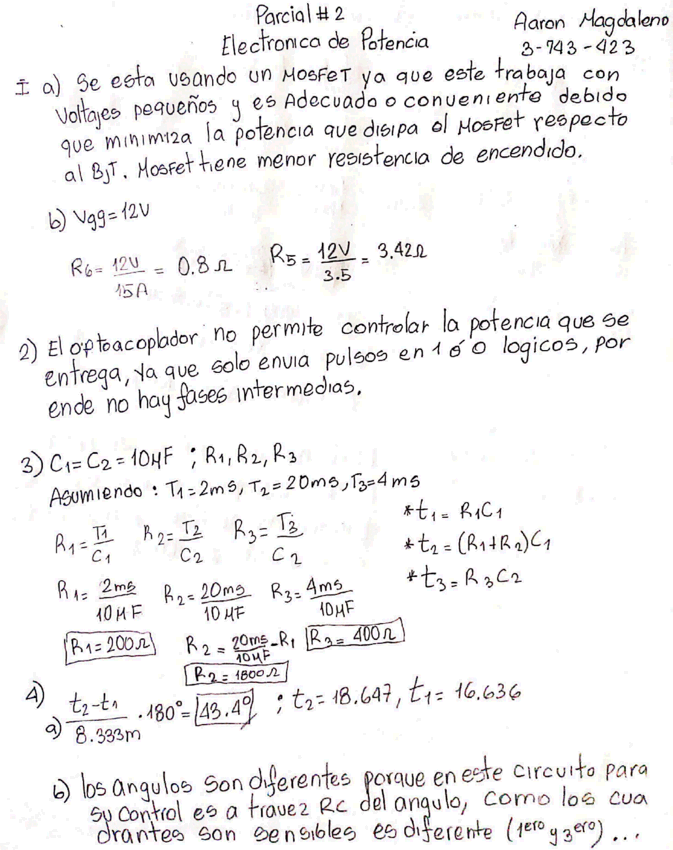 Parcial # 2
Electronica de Potencia
Aaron Magdaleno
3-743-423
I a) Se esta usando un MOSFET ya que este trabaja con
Voltajes pequeños y es Adecuado o conveniente debido
que minimiza la potencia que disipa el MOSFET respecto
al BJT. MOSFET tiene menor resistencia de encendido.
b) Vgg = 12V
R6 = 12V/15A = 0.8 Ω R5 = 12V/3.5 = 3.42Ω
2) El optoacoplador no permite controlar la potencia que se
entrega, ya que solo envia pulsos en 1 ó 0 logicos, por
ende no hay fases intermedias.
3) C1 = C2 = 10μF ; R1, R2, R3
Asumiendo : T1=2ms, T2=20ms, T3=4ms
R1 = T1/C1 R2 = T2/C2 R3 = T3/C2
*t1 = R1C1
*t2 = (R1+R2)C1
*t3 = R3C2
R1 = 2ms/10μF R2 = 20ms/10μF R3 = 4ms/10μF
R1 = 200Ω R2 = 20ms/10μF - R1 R3 = 400Ω
R2 = 1800Ω
4)
a) t2-t1/8.333m . 180° = 43.4° ; t2 = 18.647, t1 = 16.636
b) los angulos son diferentes porque en este circuito para
su control es a travez RC del angulo, como los cua
drantes son sensibles es diferente (1ero y 3ero)...